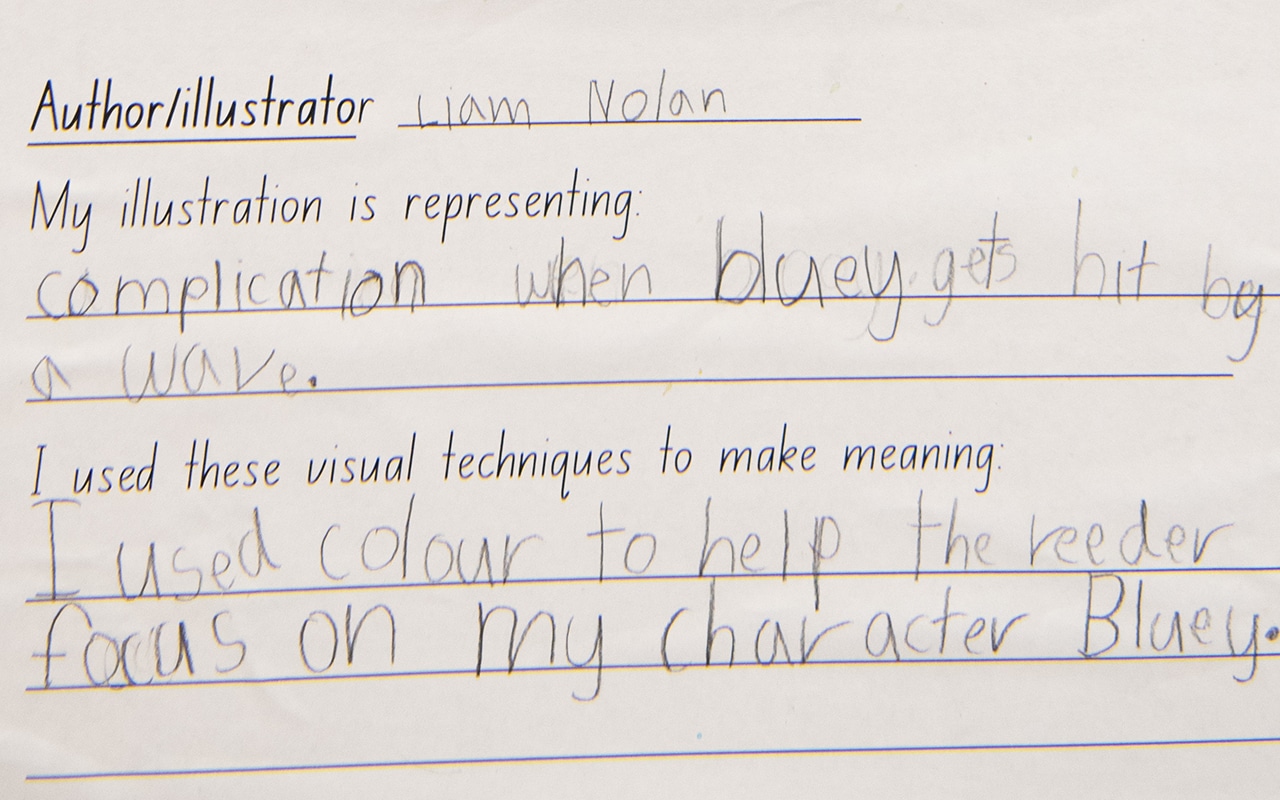 Author/illustrator Liam Nolan
My illustration is representing:
complication when bluey gets hit by
a wave.
I used these visual techniques to make meaning:
I used colour to help the reeder
focus on my character Bluey.